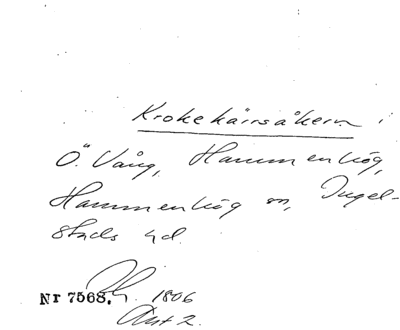 Krokekärrsåkern
Ö. Vång, Hammenhög,
Hammenhög sn, Ingel-
stads hd.
Nr 7568. 1806
Akt 2.